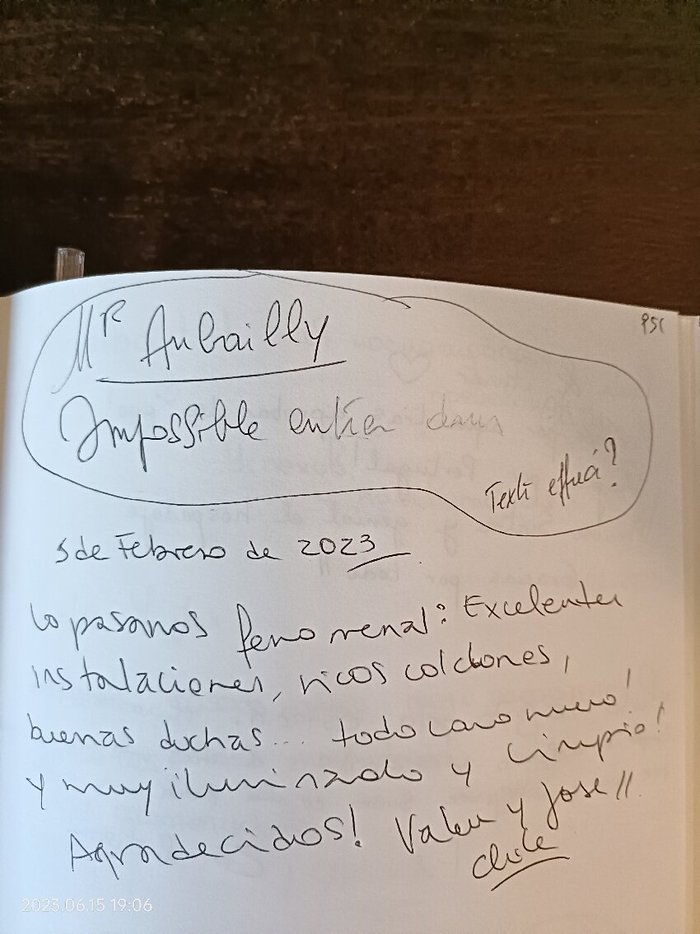 Mr Aubailly
PSC
Impossible entrer dans
Texte effacé?
5 de Febrero de 2023
Lo pasamos fenomenal: Excelentes
instalaciones, ricos colchones,
buenas duchas... todo como nuevo!
Y muy iluminado y limpio!
Agradecidos! Valeu y Jose //
Chile
2023.06.15 19:06